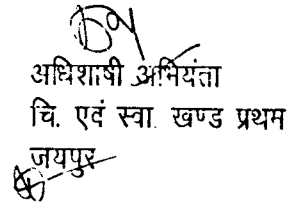 अधिशाषी अभियंता
चि. एवं स्वा. खण्ड प्रथम
जयपुर